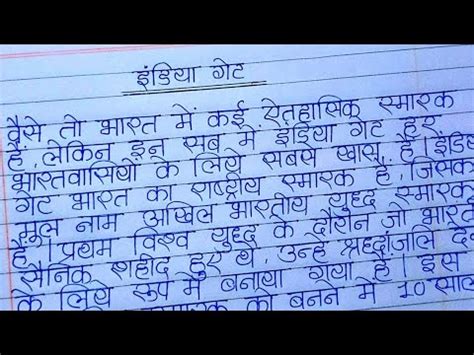 इंडिया गेट
वैसे तो भारत में कई ऐतहासिक स्मारक
है, लेकिन इन सब में इंडिया गेट हर
भारतवासियों के लिये सबसे खास है। इंडि
गेट भारत का राष्ट्रीय स्मारक है, जिसक
मूल नाम अखिल भारतीय युध्द स्मारक
है। प्रथम विश्व युध्द के दौरान जो भारत
सैनिक शहीद हुए थे, उन्हे श्रध्दांजलि दे
के लिये रूप में बनाया गया है। इस
को बनने में 10 साल